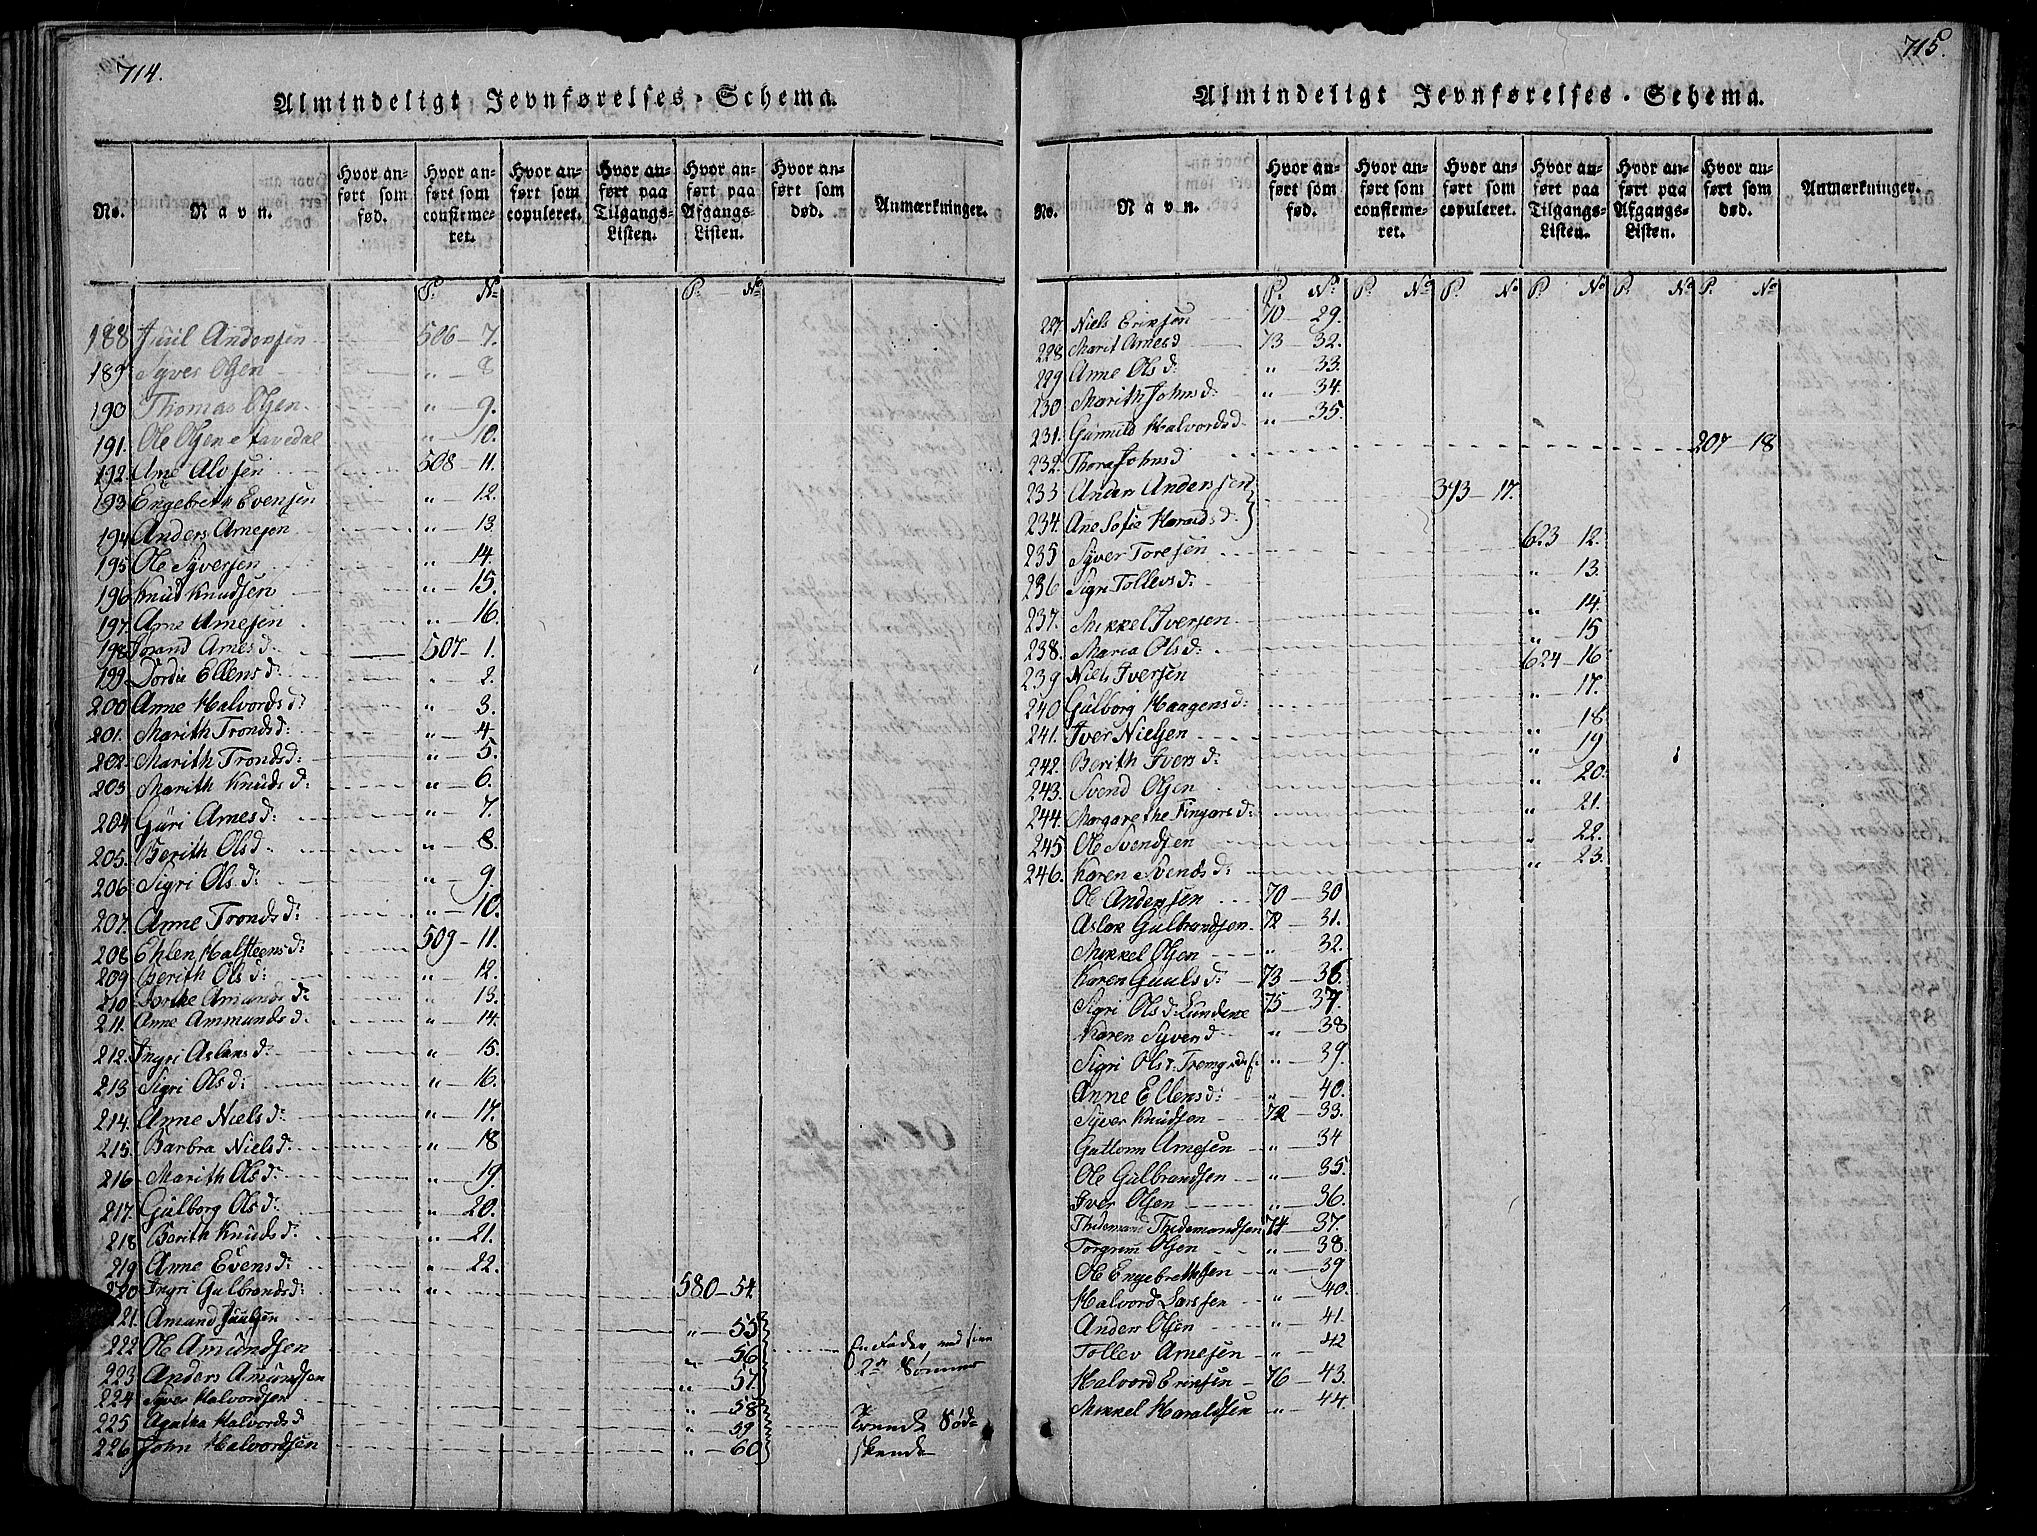 714.
Almindeligt Jevnførelses-Schema.
No.
Navn.
Hvor anført som fød.
Hvor anført som confirmeret.
Hvor anført som copuleret.
Hvor anført paa Tilgangs-Listen.
Hvor anført paa Afgangs-Listen.
Hvor anført som død.
Anmærkninger.
P. No P. No
188 Juul Andersen 506-7.
189 Syver Olsen " 8
190 Thomas Olsen " 9.
191. Ole Olsen Stavedal " 10.
192. Arne Alvsen 508-11.
193 Engebrith Evensen " 12.
194 Anders Arnesen " 13
195 Ole Syversen " 14.
196 Knud Knudsen " 15.
197. Arne Arnesen " 16.
198 Jorand Arnes d: 507-1.
199 Dordi Ellens d: " 2.
200 Anne Halvords d: " 3.
201. Marith Tronds d: " 4
202. Marith Tronds d: " 5.
203 Marith Knuds d: " 6.
204 Guri Arnes d: " 7.
205. Berith Ols d: " 8
206 Sigri Ols d: " 9.
207. Anne Tronds d: " 10.
208 Ehlen Halsteens d: 509-11.
209 Berith Ols d: " 12.
210 Dorthe Amunds d: " 13.
211. Anne Ammunds d: " 14.
212. Ingri Aslaks d: " 15.
213 Sigri Ols d: " 16.
214. Anne Niels d: " 17.
215. Barbra Niels d: " 18
216 Marith Ols d: " 19.
217. Gulborg Ols d: " 20.
218 Berith Knuds d: " 21.
219 Anne Evens d: " 22.
220 Ingri Gulbrands d: " 580-54.
221. Amund Juulsen " 55
222 Ole Amundsen " 56 En Fader med sine
223 Anders Amundsen " 57. 2de Sønner
224 Syver Halvordsen " 58
225 Agatha Halvords d " 59 Trende Sød-
226 John Halvordsen " 60 skende
715.
Almindeligt Jevnførelses-Schema.
No.
Navn.
Hvor anført som fød.
Hvor anført som confirmeret.
Hvor anført som copuleret.
Hvor anført paa Tilgangs-Listen.
Hvor anført paa Afgangs-Listen.
Hvor anført som død.
Anmærkninger.
P. No P. No P. No P. No P. No P. No
227. Niels Eriksen 70-29.
228 Marit Arnes d 73-32.
229 Anne Ols d: " 33.
230 Marith Johns d: " 34.
231. Gunnild Halvords d " 35.
232. Thora Johns d 207-18
233 Anders Andersen 393-17.
234. Ane Sofie Haralds d:
235 Syver Toresen 623 12.
236 Sigri Tollevs d: " 13.
237. Mikkel Iversen " 14.
238. Maria Ols d: " 15
239 Niels Iversen 624-16
240 Gulborg Haagens d: " 17.
241. Iver Nielsen " 18
242. Berith Ivers d: " 19
243. Svend Olsen " 20.
244. Margarethe Fingars d: " 21.
245 Ole Svendsen " 22.
246. Karen Svends d: " 23.
Ole Andersen 70-30
Aslak Gulbrandsen 72-31.
Mikkel Olsen " 32.
Karen Guuls d: 73-36.
Sigri Ols d: Lundene 75-37.
Karen Syvers d " 38
Sigri Ols d: " 39.
Anne Ellens d: " 40.
Syver Knudsen 72-33.
Guttorm Arnesen " 34
Ole Gulbrandsen " 35.
Iver Olsen " 36.
Thidemand Thidemandsen 74-37.
Torgrim Olsen " 38.
Ole Engebrethsen " 39
Halvord Larssen " 40.
Anders Olsen " 41.
Tollev Arnesen " 42
Halvord Eriksen 76-43.
Mikkel Haraldsen " 44.